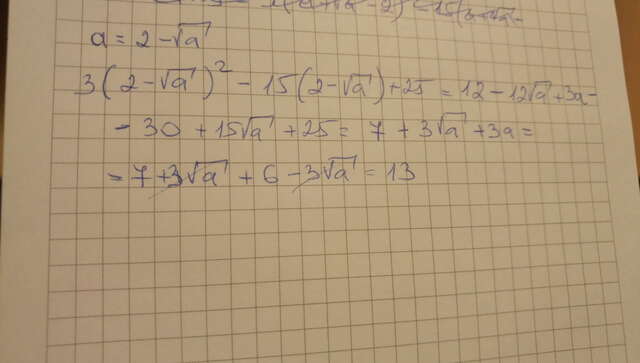 a = 2 - √a
3(2 - √a)² - 15(2 - √a) + 25 = 12 - 12√a + 3a -
- 30 + 15√a + 25 = 7 + 3√a + 3a =
= 7 + 3√a + 6 - 3√a = 13